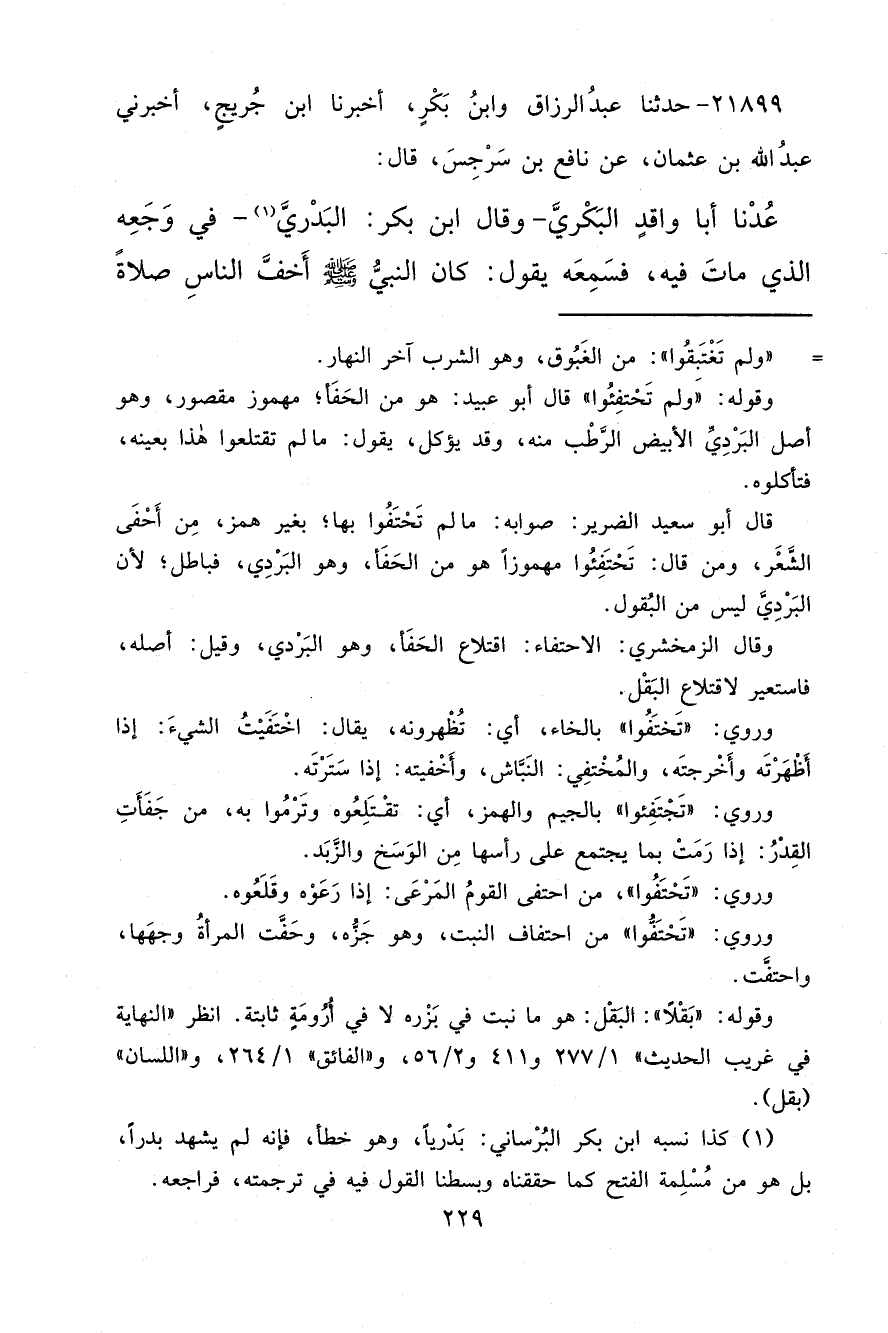 ٢١٨٩٩- حدثنا عبدُ الرزاق وابنُ بَكْرٍ، أخبرنا ابن جُريجٍ، أخبرني
عبدُ الله بن عثمان، عن نافع بن سَرْجِسَ، قال:
عُدْنا أبا واقدٍ البَكْريَّ- وقال ابن بكر: البَدْريَّ(١) - في وَجَعِه
الذي ماتَ فيه، فسَمِعَه يقول: كان النبيُّ ﷺ أَخفَّ الناسِ صلاةً
= «ولم تَغْتَبِقُوا»: من الغَبُوق، وهو الشرب آخر النهار.
وقوله: «ولم تَحْتفِئُوا» قال أبو عبيد: هو من الحَفَأ؛ مهموز مقصور، وهو
أصل البَرْدِيِّ الأبيض الرَّطْب منه، وقد يؤكل، يقول: مالم تقتلعوا هٰذا بعينه،
فتأكلوه.
قال أبو سعيد الضرير: صوابه: مالم تَحْتَفُوا بها؛ بغير همز، مِن أَحْفَى
الشَّعْر، ومن قال: تَحْتَفِئُوا مهموزاً هو من الحَفَأ، وهو البَرْدِي، فباطل؛ لأن
البَرْدِيَّ ليس من البُقول.
وقال الزمخشري: الاحتفاء: اقتلاع الحَفَأ، وهو البَرْدي، وقيل: أصله،
فاستعير لاقتلاع البَقْل.
وروي: «تَختَفُوا» بالخاء، أي: تُظْهرونه، يقال: اخْتَفَيْتُ الشيءَ: إذا
أَظْهَرْتَه وأَخْرجتَه، والمُخْتفِي: النَبَّاش، وأَخْفيته: إذا سَتَرْتَه.
وروي: «تَجْتَفِئوا» بالجيم والهمز، أي: تقْتَلِعُوه وتَرْمُوا به، من جَفَأَتِ
القِدْرُ: إذا رَمَتْ بما يجتمع على رأسها مِن الوَسَخ والزَّبَد.
وروي: «تَحْتَفُوا»، من احتفى القومُ المَرْعَى: إذا رَعَوْه وقَلَعُوه.
وروي: «تَحْتَفُّوا» من احتفاف النبت، وهو جَزُّه، وحَفَّت المرأةُ وجهَها،
واحتفَّت.
وقوله: «بَقْلًا»: البَقْل: هو ما نبت في بَزْره لا في أُرُومَةٍ ثابتة. انظر «النهاية
في غريب الحديث» ٢٧٧/١ و٤١١ و٥٦/٢، و«الفائق» ٢٦٤/١، و«اللسان»
(بقل).
(١) كذا نسبه ابن بكر البُرْساني: بَدْرياً، وهو خطأ، فإنه لم يشهد بدراً،
بل هو من مُسْلِمة الفتح كما حققناه وبسطنا القول فيه في ترجمته، فراجعه.
٢٢٩